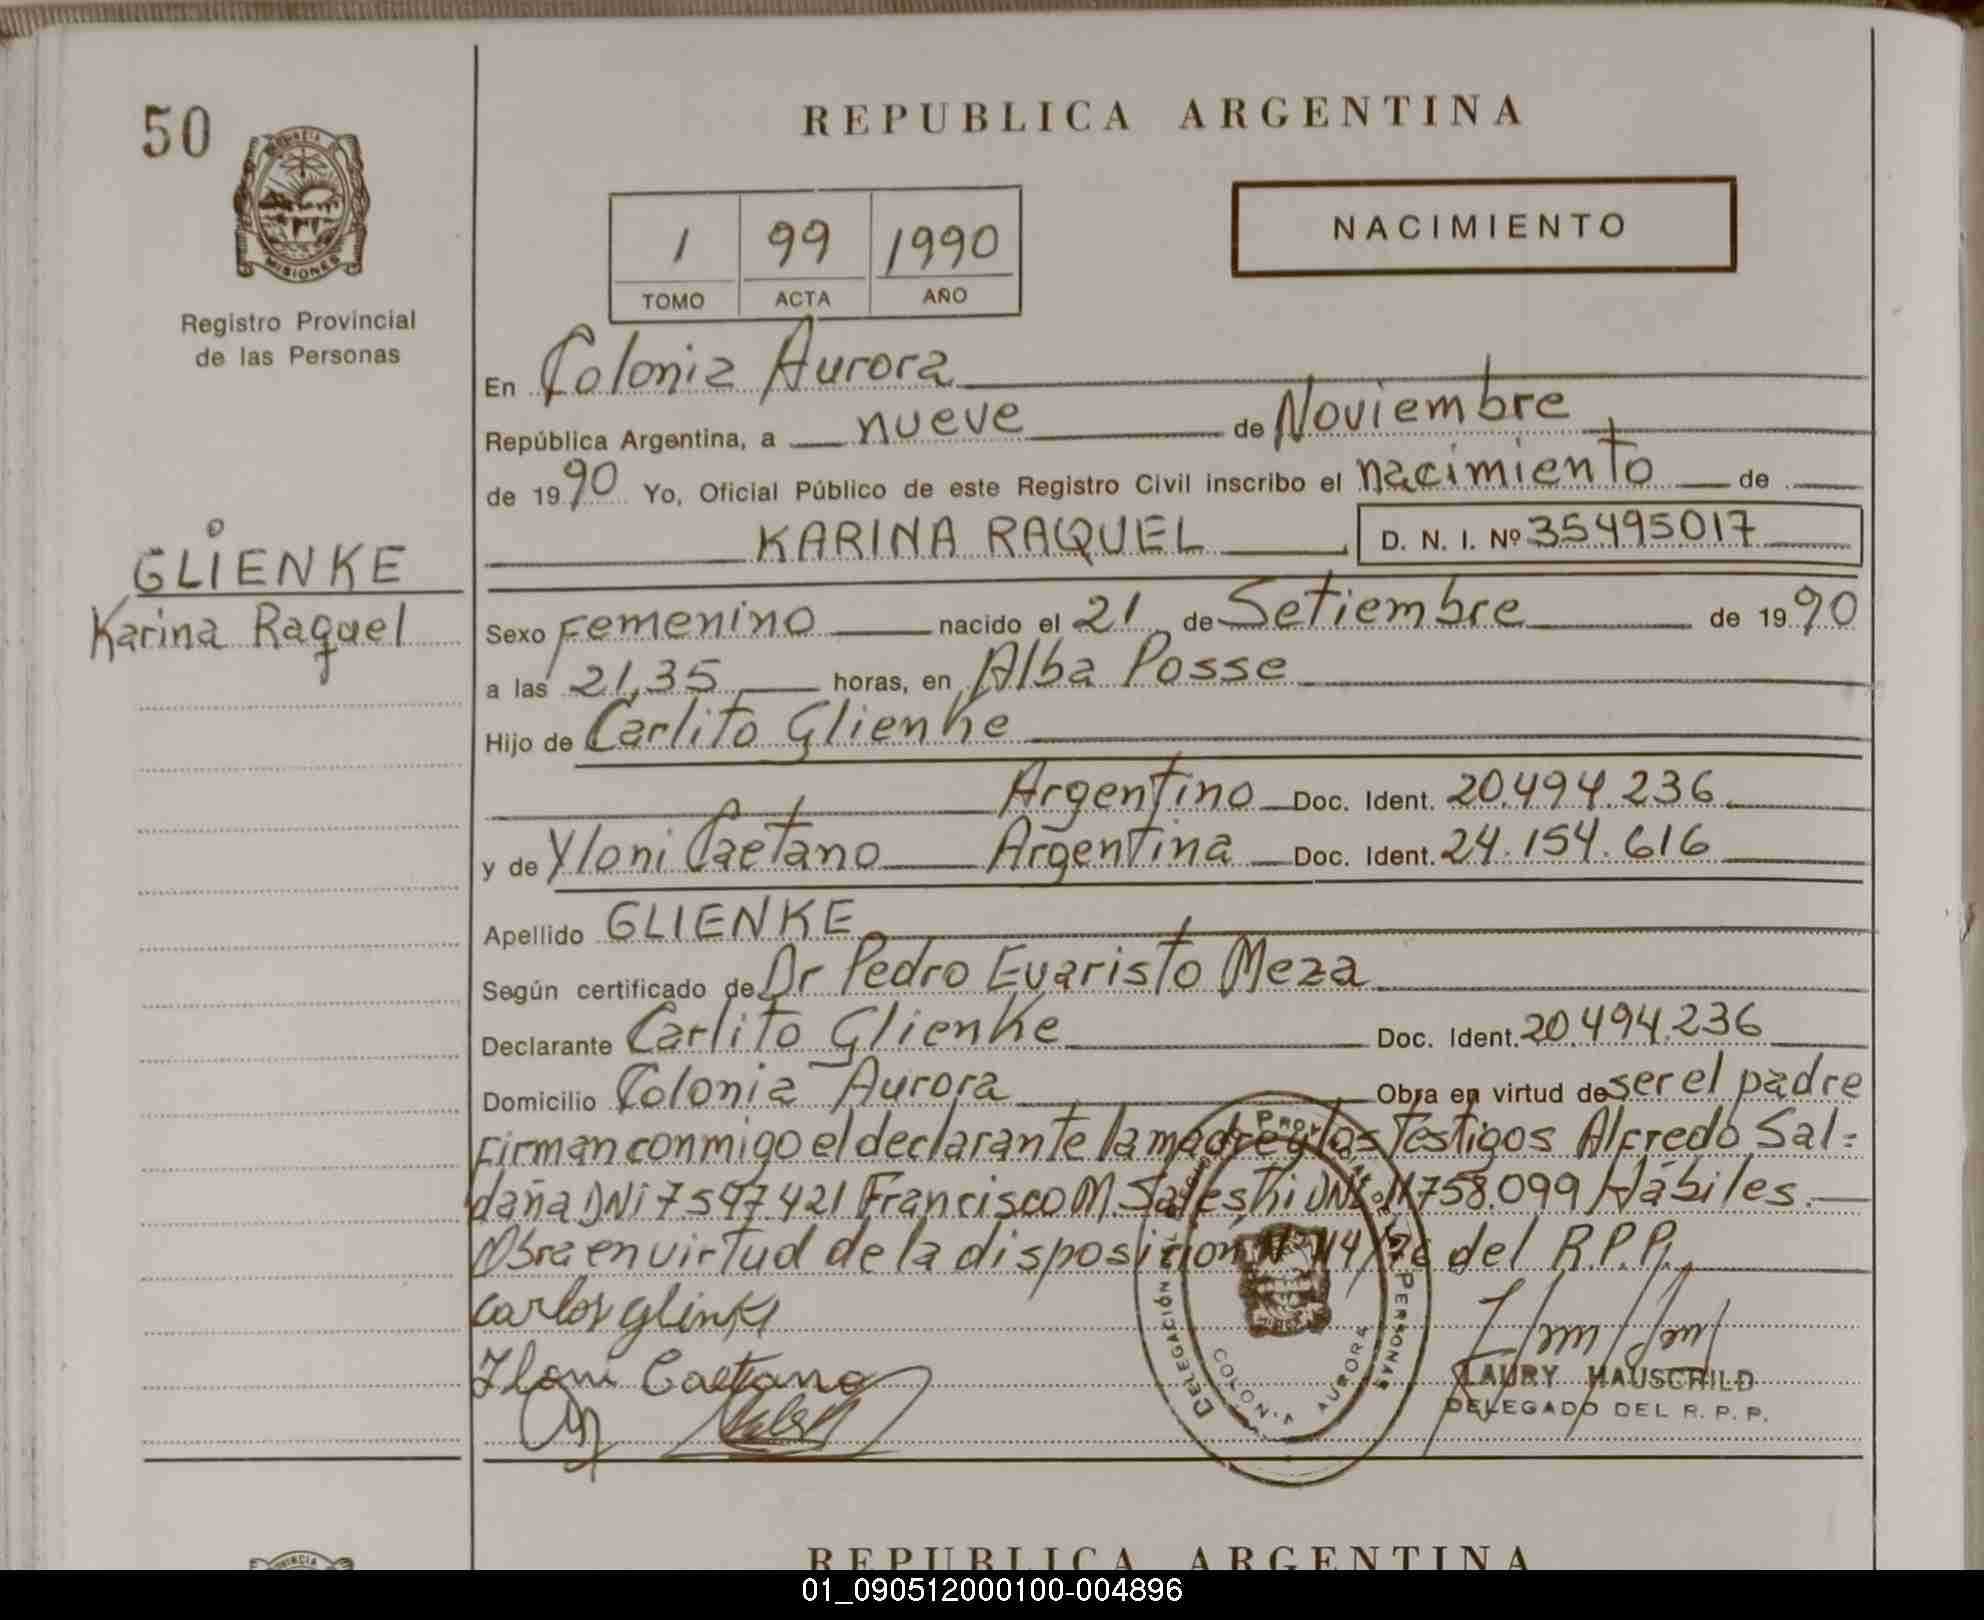 50
REPUBLICA ARGENTINA
PROVINCIA
MISIONES
NACIMIENTO
1 99 1990
TOMO ACTA AÑO
Registro Provincial
de las Personas
En Colonia Aurora
República Argentina, a nueve de Noviembre
de 1990 Yo, Oficial Público de este Registro Civil inscribo el nacimiento de
KARINA RAQUEL D. N. I. Nº 35495017
GLIENKE
Karina Raquel
Sexo Femenino nacido el 21 de Setiembre de 1990
a las 21,35 horas, en Alba Posse
Hijo de Carlito Glienke
Argentino Doc. Ident. 20.494.236
y de Yloni Caetano Argentina Doc. Ident. 24.154.616
Apellido GLIENKE
Según certificado de Dr Pedro Evaristo Meza
Declarante Carlito Glienke Doc. Ident. 20.494.236
Domicilio Colonia Aurora Obra en virtud de ser el padre
Firman conmigo el declarante la madre y los testigos Alfredo Sal=
daña DNI 7.547.421 Francisco M. DNI 11758.099 Hábiles.
Obra en virtud de la disposición Nº 114/76 del R.P.P.
Carlos
Yloni Caetano
DELEGACION
PERSONAS
COLONIA AURORA
LAURY HAUSCHILD
DELEGADO DEL R. P. P.
REPUBLICA ARGENTINA
01_090512000100-004896